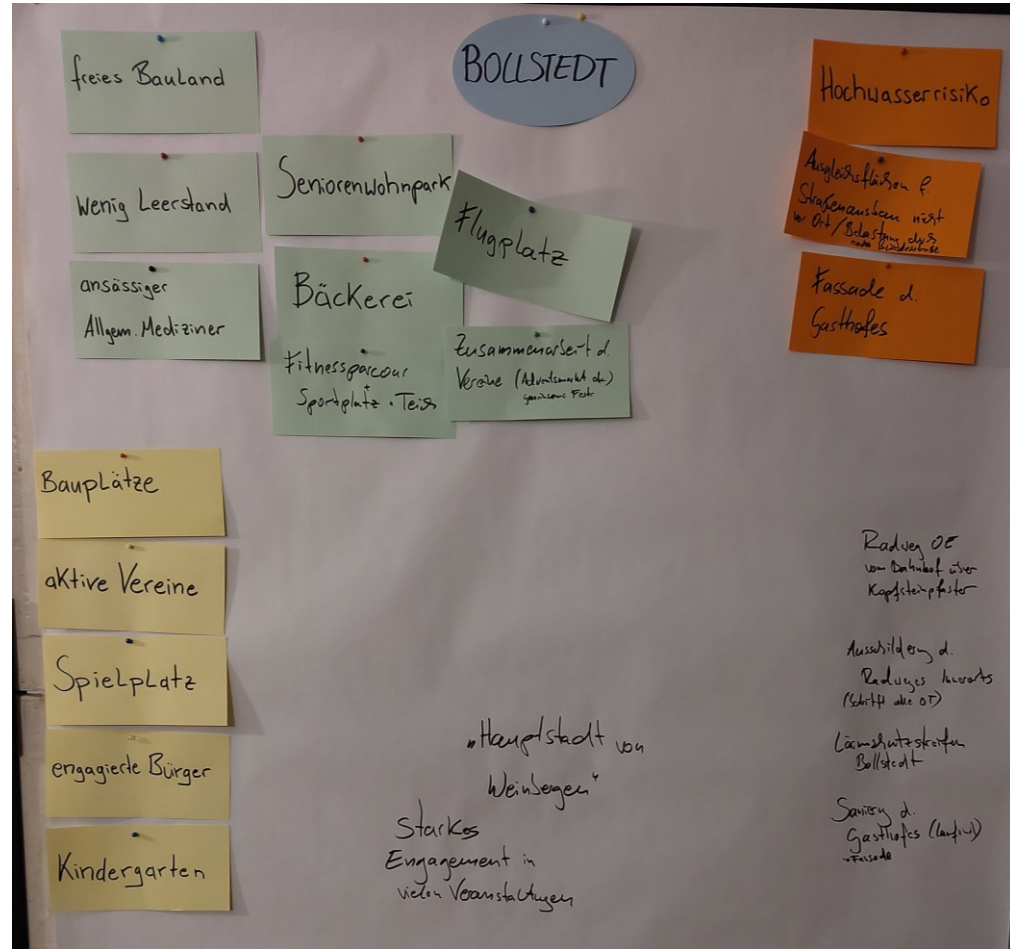 BOLLSTEDT
freies Bauland
wenig Leerstand
ansässiger
Allgem. Mediziner
Seniorenwohnpark
Bäckerei
Fitnessparcour
Sportplatz + Teich
Flugplatz
Zusammenarbeit d.
Vereine (Adventsmarkt etc.)
gemeinsame Feste
Hochwasserrisiko
Ausgleichsflächen f.
Straßenausbau nicht
vor Ort / Belastung durch
Fassade d.
Gasthofes
Bauplätze
aktive Vereine
Spielplatz
engagierte Bürger
Kindergarten
„Hauptstadt von
Weinbergen"
Starkes
Engagement in
vielen Veranstaltungen
Radweg OE
vom Bahnhof über
Kopfsteinpflaster
Ausschilderung d.
Radweges innerorts
(betrifft alle OT)
Lärmschutzstreifen
Bollstedt
Sanierung d.
Gasthofes
Fassade